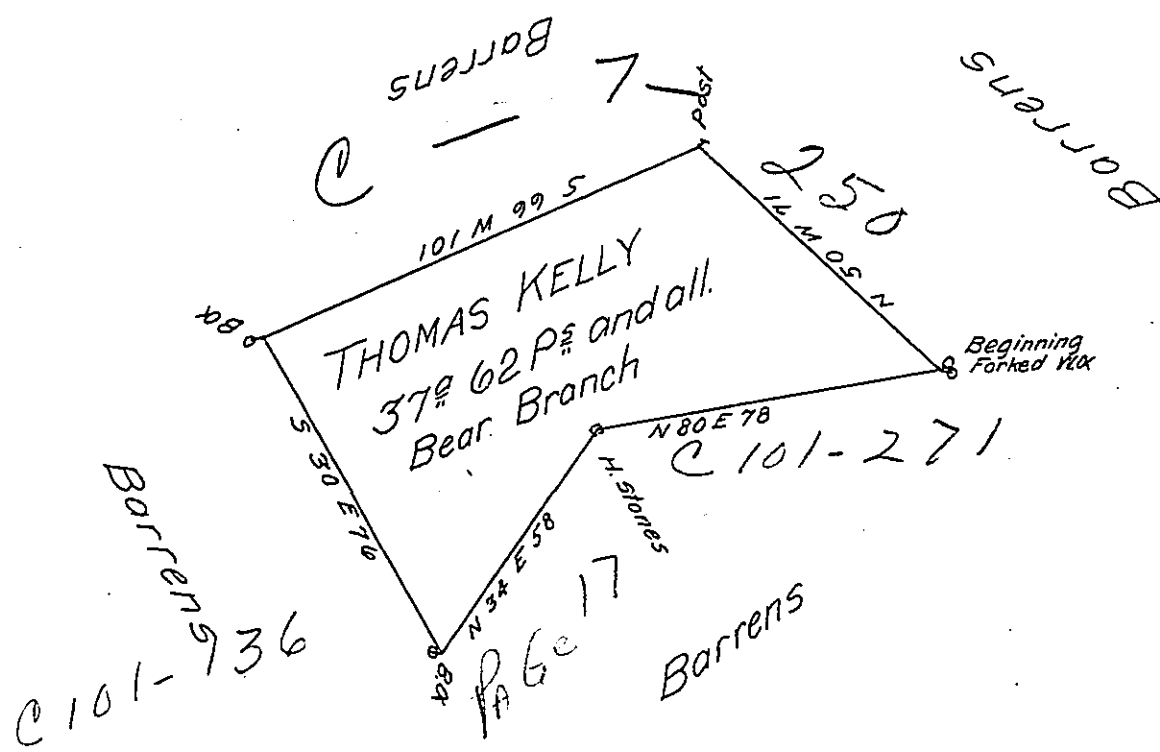 Barrens
C — 7 —
Post
Barrens
250
S 66 W 101
N 50 W 71
BO
THOMAS KELLY
37a 62 Ps and all.
Bear Branch
Beginning
Forked WO
N 80 E 78
C 101-271
H. Stones
S 30 E 76
N 34 E 58
Barrens
C 101-736
BO
PAGe 17
Barrens